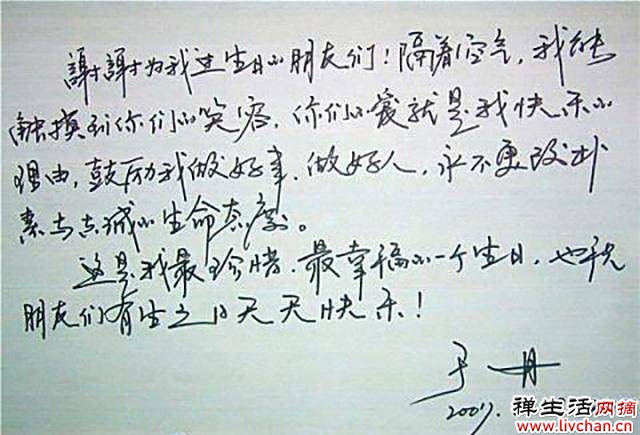 謝謝为我过生日的朋友们！隔着空气，我能
触摸到你们的笑容，你们的爱就是我快乐的
理由，鼓励我做好事、做好人，永不更改朴
素与真诚的生命态度。
这是我最珍惜、最幸福的一个生日，也祝
朋友们有生之日天天快乐！
于丹
2007.
禅生活网摘
www.livchan.cn